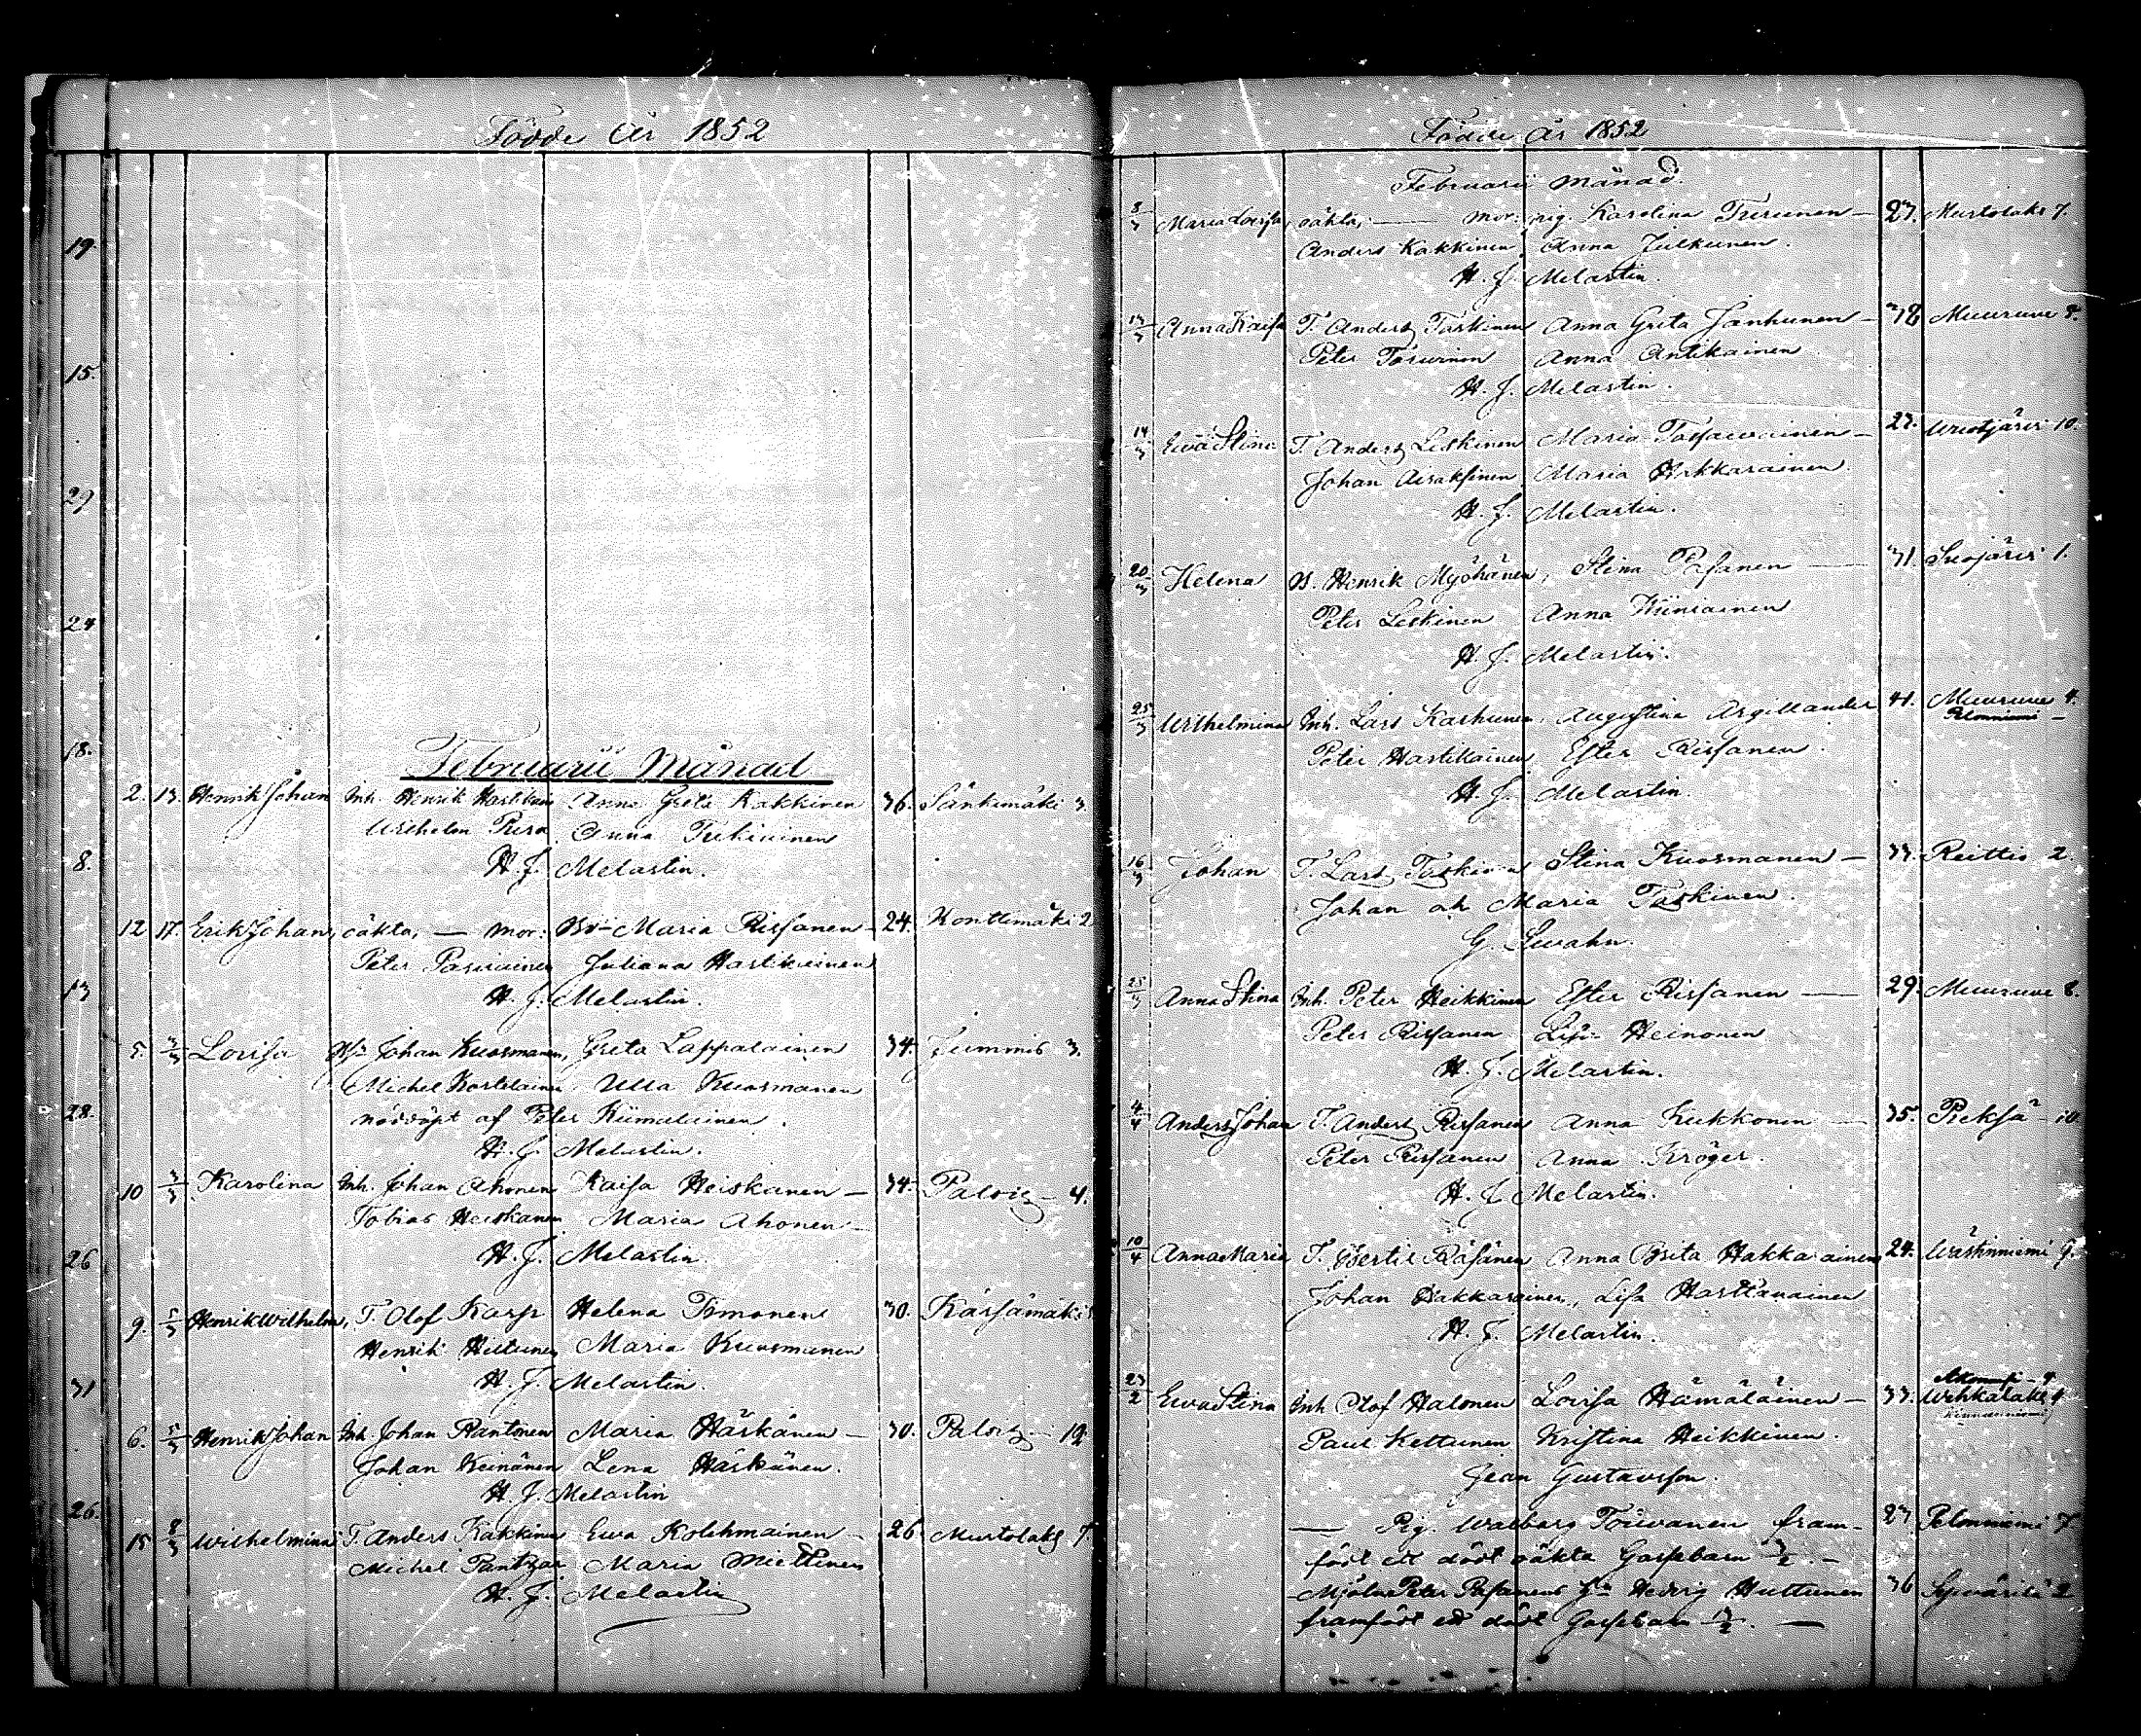 Födde År 1852
19.
15.
29
24
18.
8.
13
28.
26
31
26.
Februarii Månad
2. 13. Henrik Johan Inh. Henrik Hartikain Anna Greta Kakkinen 36. Sänkimäki 3.
Wilhelm Pirso Anna Tukiainen
H. J. Melartin.
12 17. Erik Johan, oäkta, — mor: Maria Rissanen 24. Konttimäki 2
Peter Juliana Hartikainen
H. J. Melartin.
5. 3/3 Lovisa Johan Kuosmanen, Greta Lappalainen 34. Jummis 3.
Michel Kortelainen Ulla Kuosmanen
nöddöpt af Peter Kiimalainen.
H. J. Melartin.
10 3/3 Karolina Inh. Johan Ahonen Kaisa Heiskanen — 34. Palois — 4.
Tobias Heiskanen Maria Ahonen —
H. J. Melartin.
9. 5/3 Henrik Wilhelm, T. Olof Karp Helena Timonen 30. Kärsämäki
Henrik Hiltunen Maria Kuosmanen
H. J. Melartin.
6. 5/3 Henrik Johan Inh. Johan Rantonen Maria Häskänen — 30. Palois — 12
Johan Keinänen Lena Häskänen.
H. J. Melartin
15 8/3 Wilhelmina T. Anders Kakkinen Ewa Kolehmainen — 26 Murtolaks 7.
Michel Pantzar Maria Miettinen
H. J. Melartin
Födde År 1852
Februarii Månad.
8/3 Maria Lovisa, oäkta, — mor: pig. Karolina Turunen — 23. Murtolaks 7.
Anders Kakkinen Anna Julkunen.
H. J. Melartin.
13/3 Anna Kaisa T. Anders Taskinen Anna Greta Janhunen — 38 Muuruve 8.
Peter Toruinen Anna Antikainen
H. J. Melartin.
14/3 Ewa Stina T. Anders Leskinen Maria Tossawainen — 23. Wuotjärvi 10.
Johan Airaksinen Maria Hakkarainen
H. J. Melartin.
20/3 Helena B. Henrik Myöhänen, Stina Pasanen — 31. Suojärvi 1.
Peter Leskinen Anna Kiiniainen
H. J. Melartin.
25/3 Wilhelmina Inh. Lars Karhunen, Augustina Argillander 41. Muuruve 4.
Pelonniemi —
Peter Hartikainen Ester Rissanen.
H. J. Melartin.
16/3 Johan T. Lars Taskinen Stina Kuosmanen — 33. Reittio 2.
Johan och Maria Taskinen.
G. Lewahn.
25/3 Anna Stina Inh. Peter Heikkinen Ester Rissanen — 29. Muuruve 8.
Peter Rissanen Lisa Heinonen
H. J. Melartin.
4/4 Anders Johan T. Anders Rissanen Anna Kukkonen — 35. Pieksä — 10
Peter Rissanen Anna Kröger.
H. J. Melartin.
10/4 Anna Maria T. Bertil Räsänen Anna Brita Hakkarainen 24. Wästinniemi 9.
Johan Hakkarainen, Lisa Harttanainen
H. J. Melartin.
23/2 Ewa Stina Inh Olof Halonen Lovisa Hämäläinen — 33. Wehkalaks 4
Paul Kettunen Kristina Heikkinen.
Jean Gustavsson.
— Pig. Walborg Toiwanen fram- 23 Pelonniemi 7.
födt ett dödt oäkta Gossebarn —
Mjölnar Peter Pasanens Hedvig Huttunen 36 Syvärilä 2
framfödt ett dödt Gossebarn —